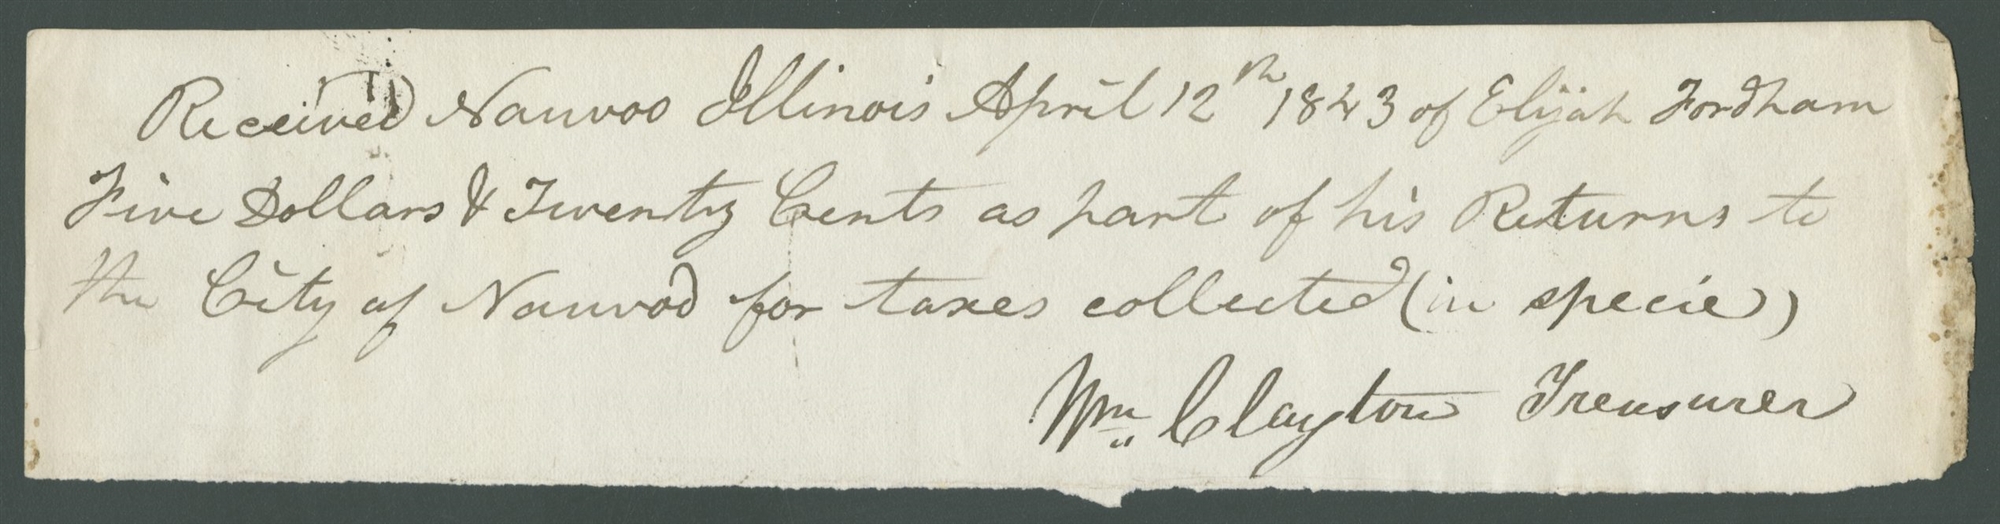 Received Nauvoo Illinois April 12th 1843 of Elijah Fordham
Five Dollars & Twenty Cents as part of his Returns to
the City of Nauvoo for taxes collected (in specie)
Wm Clayton Treasurer